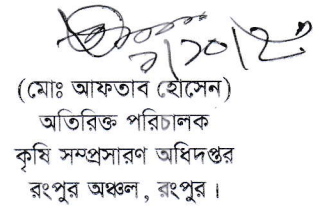 ২/১০/২৫
(মোঃ আফতাব হোসেন)
অতিরিক্ত পরিচালক
কৃষি সম্প্রসারণ অধিদপ্তর
রংপুর অঞ্চল, রংপুর।